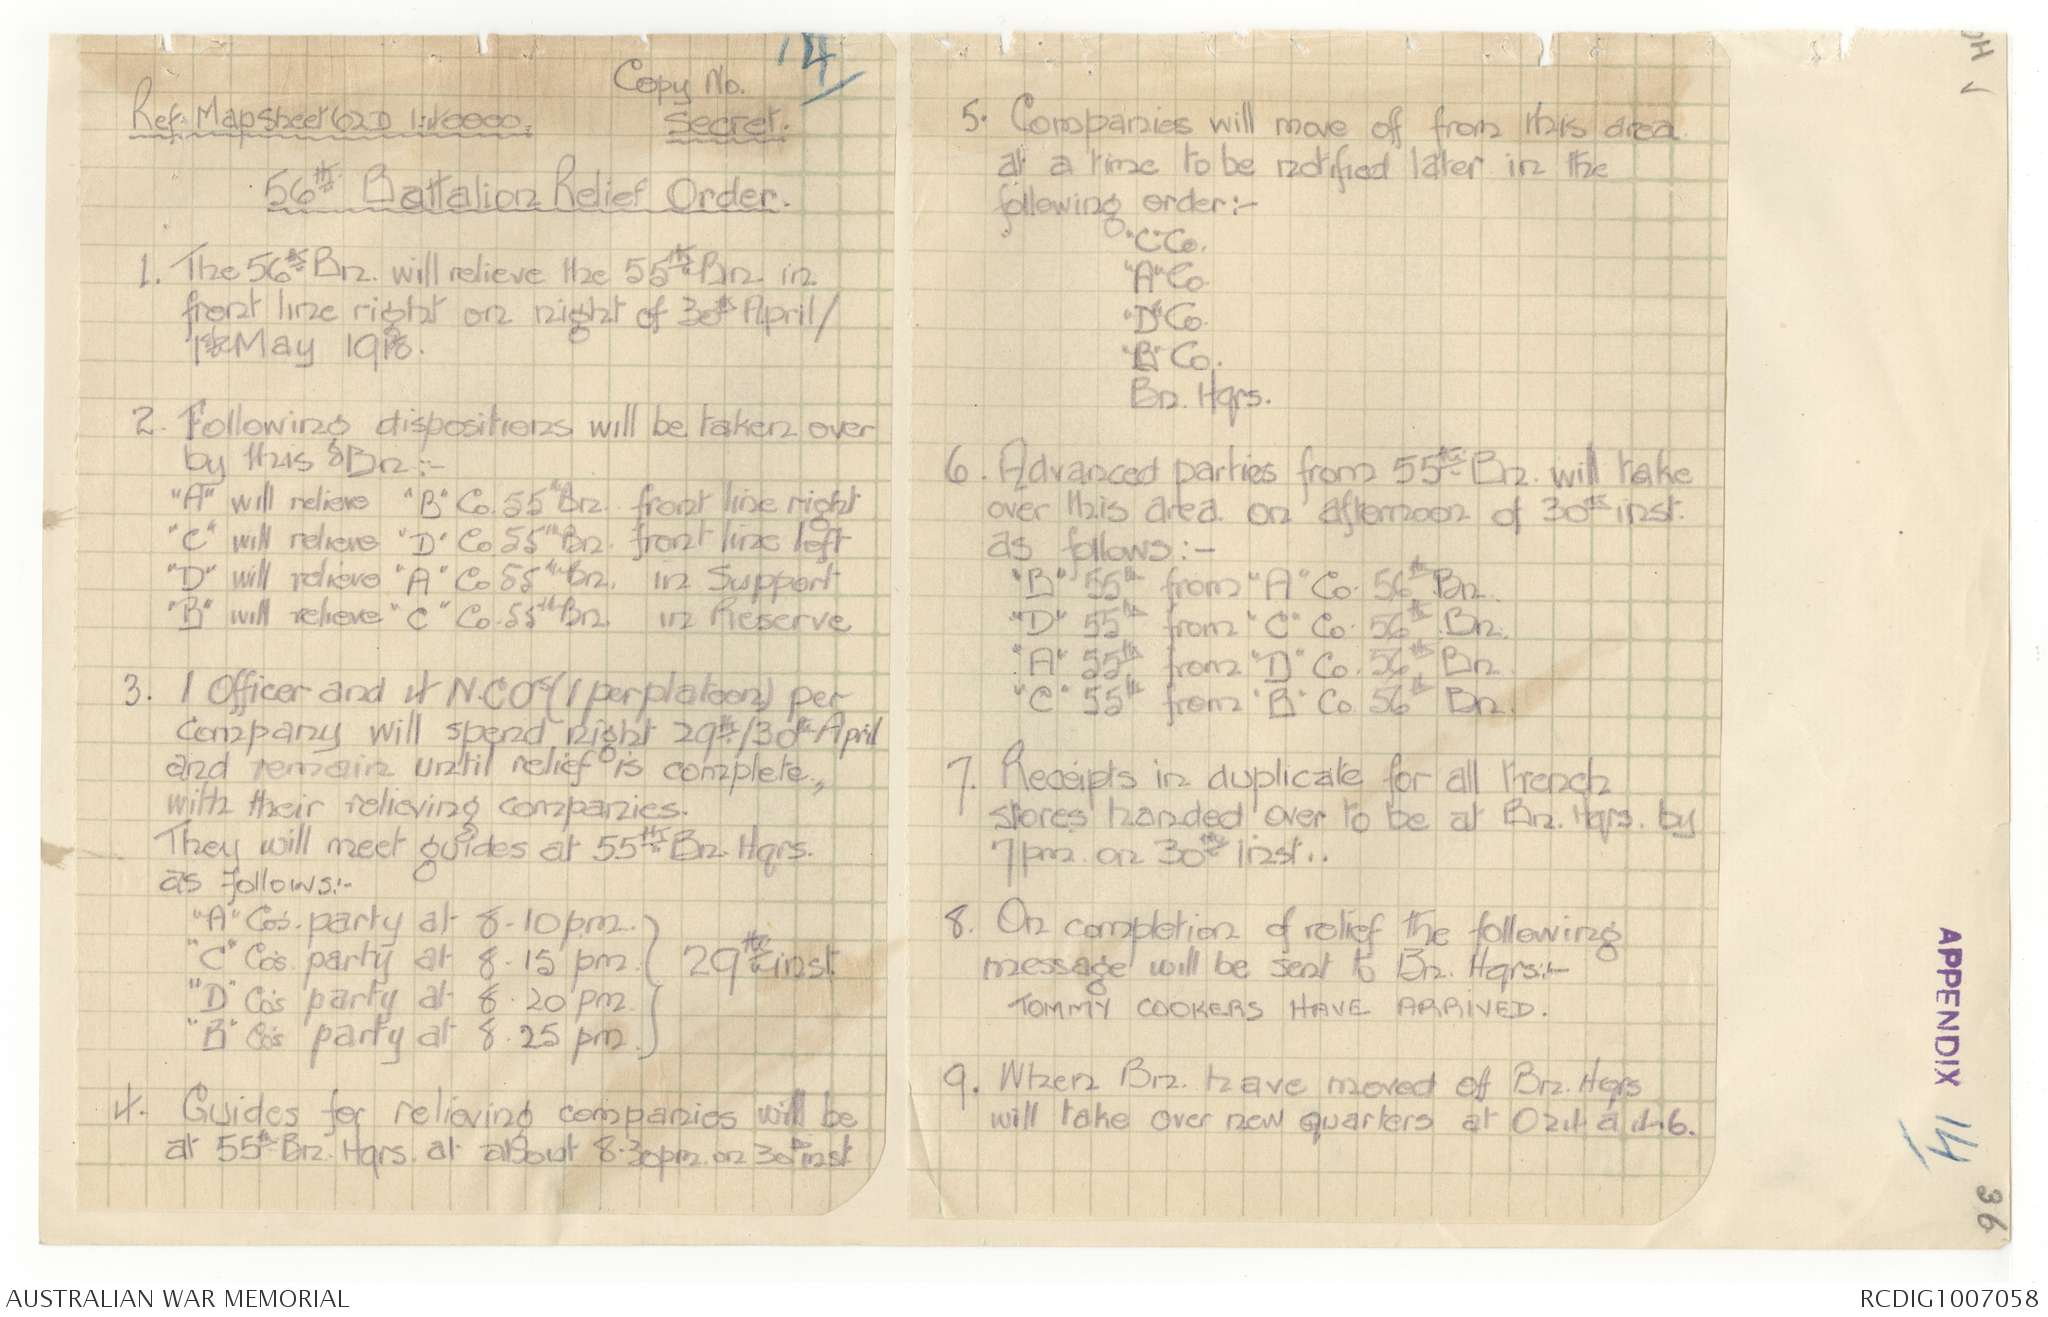 14
Copy No.
Ref: Map Sheet 62D 1:40000. Secret.
56th Battalion Relief Order.
1. The 56th Bn. will relieve the 55th Bn. in
front line right on night of 30th April/
1st May 1918.
2. Following dispositions will be taken over
by this Bn:-
"A" will relieve "B" Co. 55th Bn. front line right
"C" will relieve "D" Co. 55th Bn. front line left
"D" will relieve "A" Co 55th Bn. in Support
"B" will relieve "C" Co. 55th Bn. in Reserve
3. 1 Officer and 4 N.C.Os (1 per platoon) per
company will spend night 29th/30th April
and remain until relief is complete,
with their relieving companies.
They will meet guides at 55th Bn. Hqrs.
as follows:-
"A" Co's. party at 8.10 pm.
"C" Co's party at 8.15 pm. 29th inst
"D" Co's party at 8.20 pm.
"B" Co's party at 8.25 pm.
4. Guides for relieving companies will be
at 55th Bn. Hqrs. at about 8.30pm. on 30th inst
5. Companies will move of from this area
at a time to be notified later in the
following order:-
"C" Co.
"A" Co.
"D" Co.
"B" Co.
Bn. Hqrs.
6. Advanced parties from 55th Bn. will take
over this area on afternoon of 30th inst.
as follows:-
"B" 55th from "A" Co. 56th Bn.
"D" 55th from "C" Co. 56th Bn.
"A" 55th from "D" Co. 56th Bn.
"C" 55th from "B" Co. 56th Bn.
7. Receipts in duplicate for all trench
stores handed over to be at Bn. Hqrs. by
7pm. on 30th inst..
8. On completion of relief the following
message will be sent to Bn. Hqrs:-
TOMMY COOKERS HAVE ARRIVED.
9. When Bn. have moved of Bn. Hqrs
will take over new quarters at O24 a 4.6.
APPENDIX 14
36
AUSTRALIAN WAR MEMORIAL
RCDIG1007058